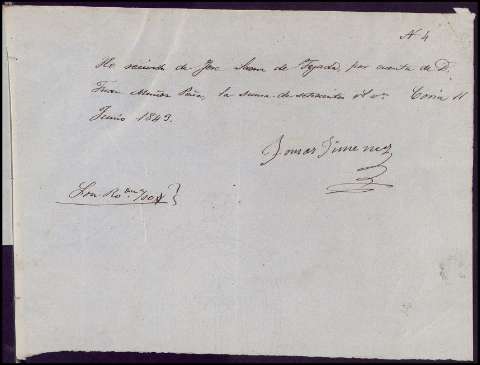 N 4
He recivido de Jose Saenz de Tejada, por cuenta de D.
Juan Muñoz Peña, la suma de setecientos r.s v.n Coria 11
Junio 1849.
Tomas Jimenez
Son R.s